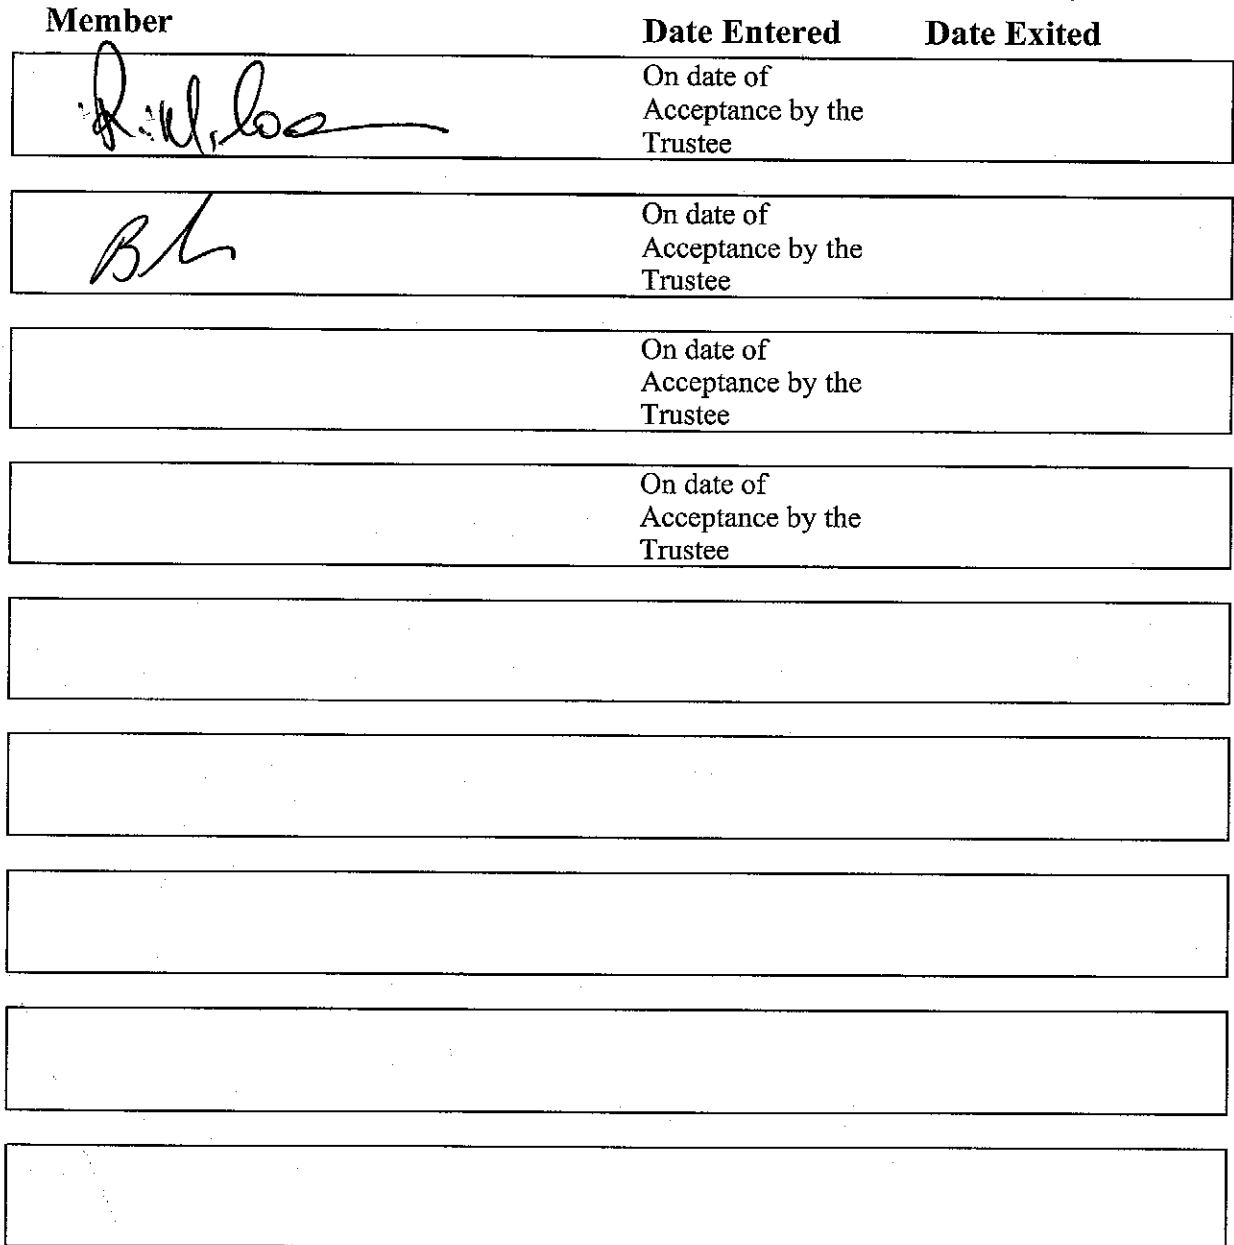 Member Date Entered Date Exited
On date of
Acceptance by the
Trustee
On date of
Acceptance by the
Trustee
On date of
Acceptance by the
Trustee
On date of
Acceptance by the
Trustee